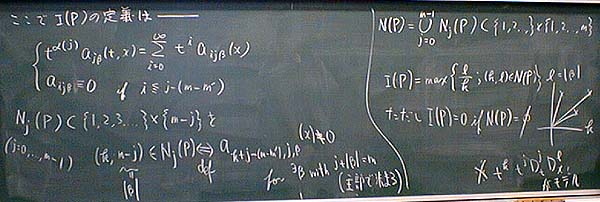 ここで I(P)の定義は——
{ t^{α(j)} a_{jβ}(t,x) = Σ_{i=0}^{∞} t^i a_{ijβ}(x)
a_{ijβ} ≡ 0 if i ≤ j-(m-m')
N_j(P) ⊂ {1,2,3...}×{m-j} を
(j=0,...,m-1) (k, m-j) ∈ N_j(P) ⇔ a_{k+j-(m-m'),j,β}(x) ≢ 0
def
|β|
for ∃β with j+|β|=m
(主部で決まる)
N(P) = ∪_{j=0}^{m-1} N_j(P) ⊂ {1,2,..}×{1,2,..,m}
I(P) = max{ l/k ; (k,l)∈N(P)} l=|β|
ただし I(P)=0 if N(P)=φ
k
※ t^k t^j D_t^j D_x^l